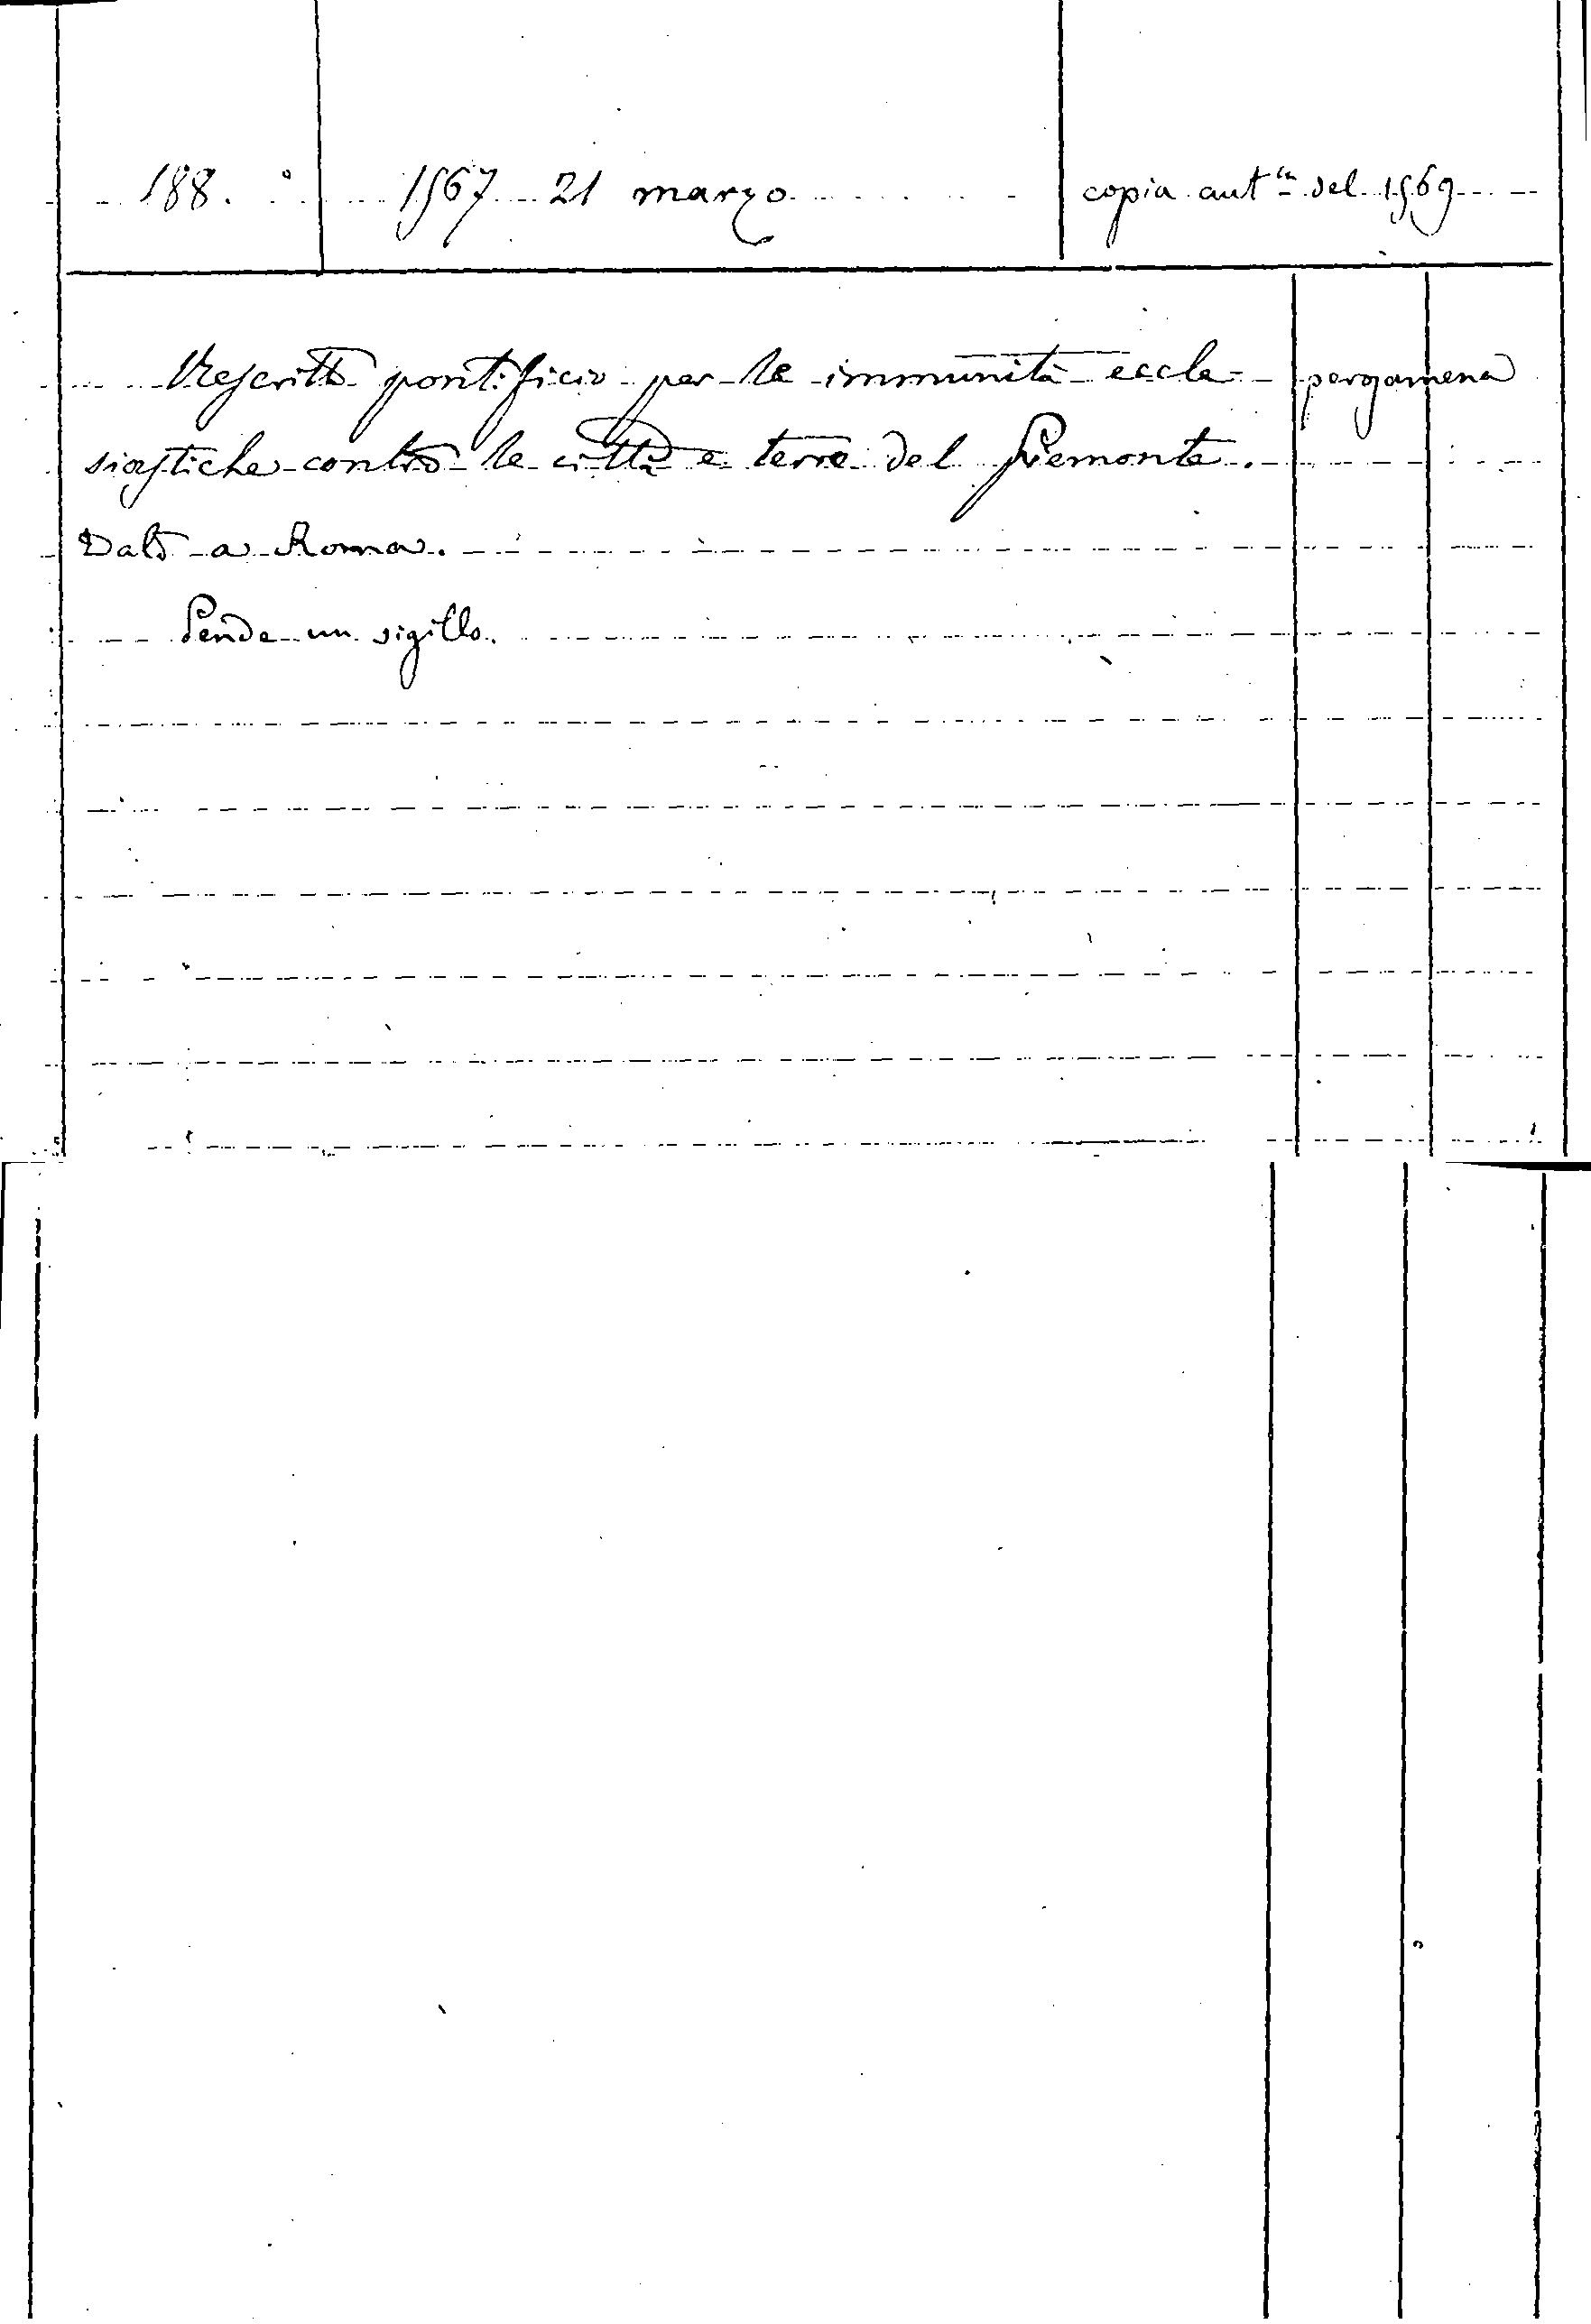 188. 1567 21 marzo copia aut.ca del 1569
Rescritto pontificio per le immunità eccle- pergamena
siastiche contro le città e terre del Piemonte.
Dato a Roma.
Pende un sigillo.